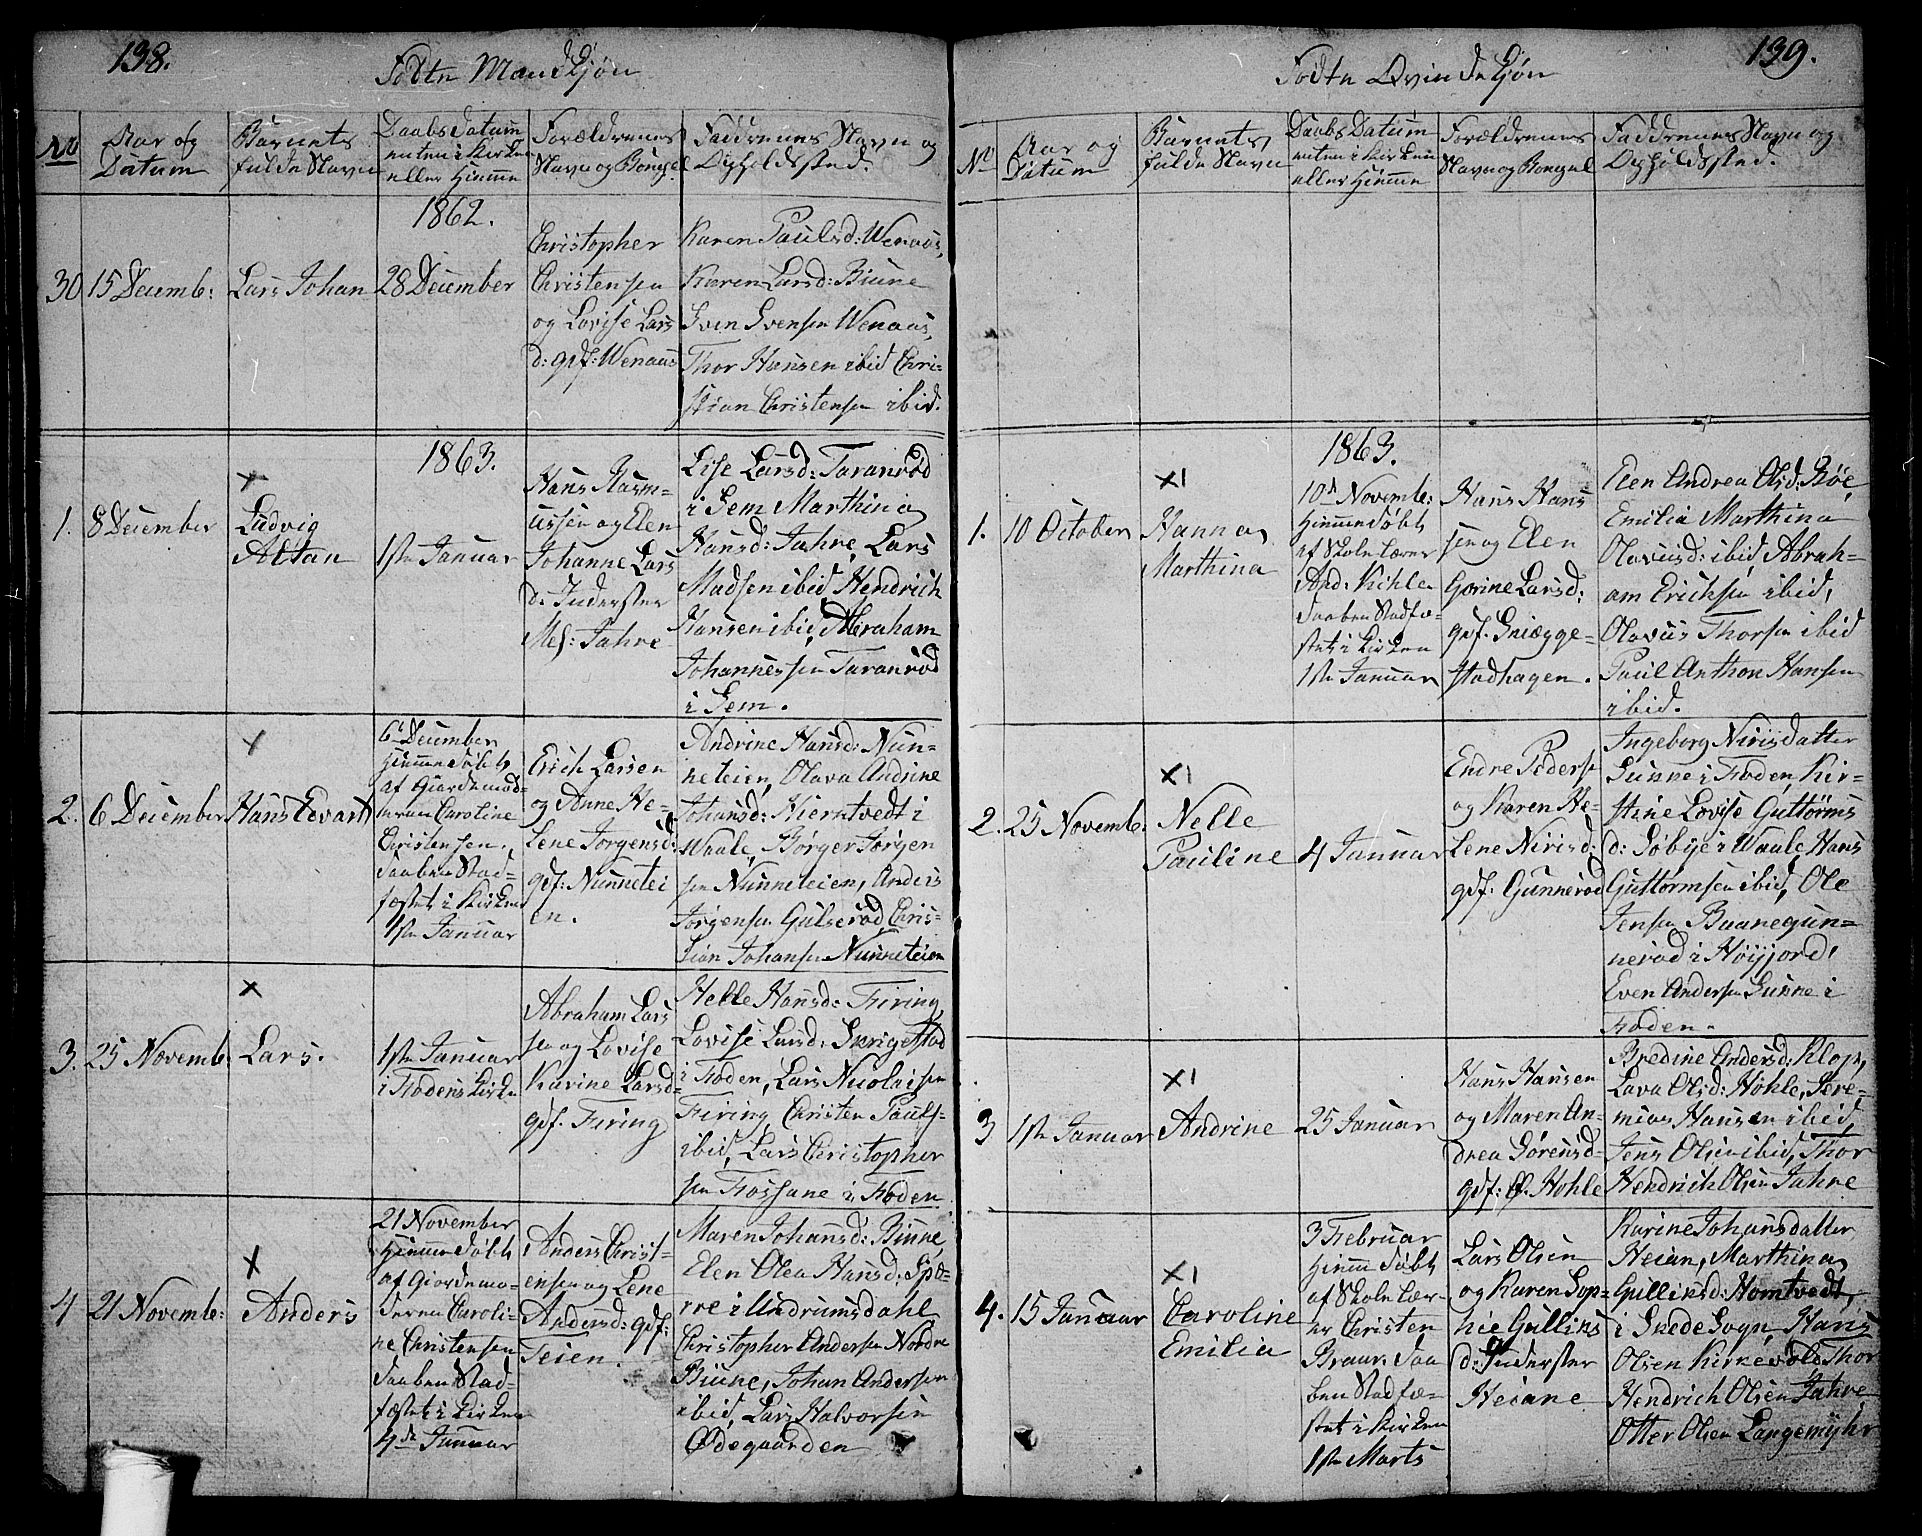 138.
Fødte Mandkjøn
No
Aar og
Datum
Barnets
fulde Navn
Daabs Datum
enten i Kirken
eller Hjemme
Forældrenes
Navn og Bopæl
Faddrenes Navn og
Opholdssted.
1862.
30
15 Decemb:
Lars Johan
28 December
Christopher
Christensen
og Lovise Lars
d: gdf: Wenaas
Karen Paulsd: Wenaas,
Karen Larsd: Biune
Sven Svensen Wenaas,
Thor Hansen ibid Chri-
stian Christensen ibid.
1863.
1.
8 December
x
Ludvig
Altan
1ste Januar
Hans Rasm-
ussen og Elen
Johanne Lars
d: Inderster
Mes: Jahre
Lise Larsd: Taranrød
i Sem Marthina
Hansd: Jahre, Lars
Madsen ibid, Hendrich
Hansen ibid, Abraham
Johannessen Taranrød
i Sem.
2.
6 December
x
Hans Edvart
6 December
Hjemmedøbt
af Giordemod-
eren Caroline
Christensen.
Daaben Stad-
fæstet i Kirken
1ste Januar
Erich Larsen
og Anne He-
lene Jorgensd:
gdf: Nunnetei
en.
Andrine Hansd: Nun-
neteien, Olava Andrine
Johansd: Hierntvedt i
Waale, Børger Jørgen
sen Nunneteien, Anders
Jørgensen Gulserød, Chris-
tian Johansen Nunneteien
3.
25 Novemb:
x
Lars.
1ste Januar
i Fodens Kirke
Abraham Lars
sen og Lovise
Karine Larsd
gdf. Firing
Helle Hansd: Firing,
Lovise Larsd: Skrigestad
i Foden, Lars Nicolaisen
Firing, Christen Pauls-
ibid, Lars Christopher
sen Fossane i Foden.
4
21 Novemb:
x
Anders
21 November
Hjemmedøbt
af Giordemo-
deren Caroli-
ne Christensen
Daaben Stad-
fæstet i Kirken
4de Januar
Anders Christ-
ensen og Lene
Andersd: gdf:
Teien.
Maren Johansd: Biune,
Elen Olea Hansd: Spe-
rre i Undrumsdahl
Christopher Andersen Nordre
Biune, Johan Andersen
ibid, Lars Halvorsen
Ødegaarden
139.
Fødte Qvindekjøn
No
Aar og
Datum
Barnets
fulde Navn
Daabs Datum
enten i Kirken
eller Hjemme
Forældrenes
Navn og Bopæl
Faddrenes Navn og
Opholdssted.
1863.
1.
10 October
x1
Hanna
Marthina
10d Novemb:
Hjemmedøbt
af Skolelærer
And: Kihle
Daaben Stadfæ-
stet i Kirken
1ste Januar
Hans Hans
sen og Elen
Gorine Larsd:
gdf. Sniægge-
stadhagen.
Elen Andrea Olsd: Bøe,
Emilia Marthina
Olavusd: ibid, Abrah-
am Erichsen ibid,
Olavus Thorsen ibid
Paul Anthon Hansen
ibid.
2.
25 Novemb:
x1
Nelle
Pauline
4 Januar
Endre Peders
og Karen He-
lene Nirisd:
gdf: Gunnerød
Ingeborg Nirisdatter
Sunne i Foden, Kir-
stine Lovise Guttorms
d: Søbye i Waale, Hans
Guttormsen ibid, Ole
Jensen Baanegun-
nerød i Høyjord,
Even Andersen Sunne i
Foden.
3
1ste Januar
x1
Andrine
25 Januar
Hans Hansen
og Maren An-
drea Sørensd
gdf: Hohle
Bredine Andersd: Klop,
Lava Olsd: Hohle, Jere-
mias Hansen ibid,
Jens Olsen ibid, Thor
Hendrich Olsen Jahre
4.
15 Januar
x1
Caroline
Emilia
3 Februar
Hjemmedøbt
af Skolelær-
er Christen
Braar. Daa
ben Stadfæ-
stet i Kirken
1ste Marts
Lars Olsen
og Karen Sop-
hie Gulliks
d: Inderster
Heiane
Karine Johansdatter
Heian, Marthina
Gulliksd: Homtvedt,
i Skedesogn, Hans
Olsen Kirkevold Thor
Hendrich Olsen Jahre
Otter Olsen Langemyhr